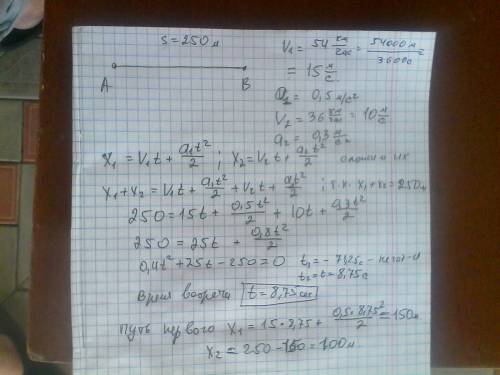 S = 250 м
A B
V₁ = 54 км/час = 54000 м / 3600 с =
= 15 м/с
a₁ = 0,5 м/с²
V₂ = 36 км/час = 10 м/с
a₂ = 0,3 м/с²
x₁ = V₁t + a₁t²/2 ; x₂ = V₂t + a₂t²/2 сложим их
x₁ + x₂ = V₁t + a₁t²/2 + V₂t + at²/2 ; т.к. x₁ + x₂ = 250 м
250 = 15t + 0,5t²/2 + 10t + 0,3t²/2
250 = 25t + 0,8t²/2
0,4t² + 25t - 250 = 0 t₁ = - 71,25 с -
t₂ = t = 8,75 с
Время встречи t = 8,75 сек
Путь первого x₁ = 15 * 8,75 + 0,5 * 8,75²/2 = 150 м
x₂ = 250 - 150 = 100 м